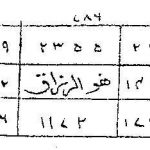 ٧٨٦
٩ ٢٣٥٥ ٢
٢ هو الرزاق ١٣
٦ ١١٧٢ ١٧